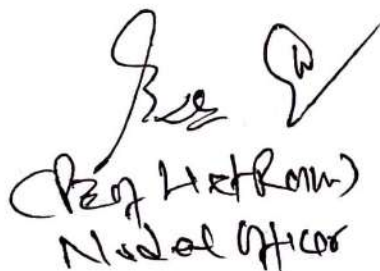 (Prof Het Ram)
Nodal Officer